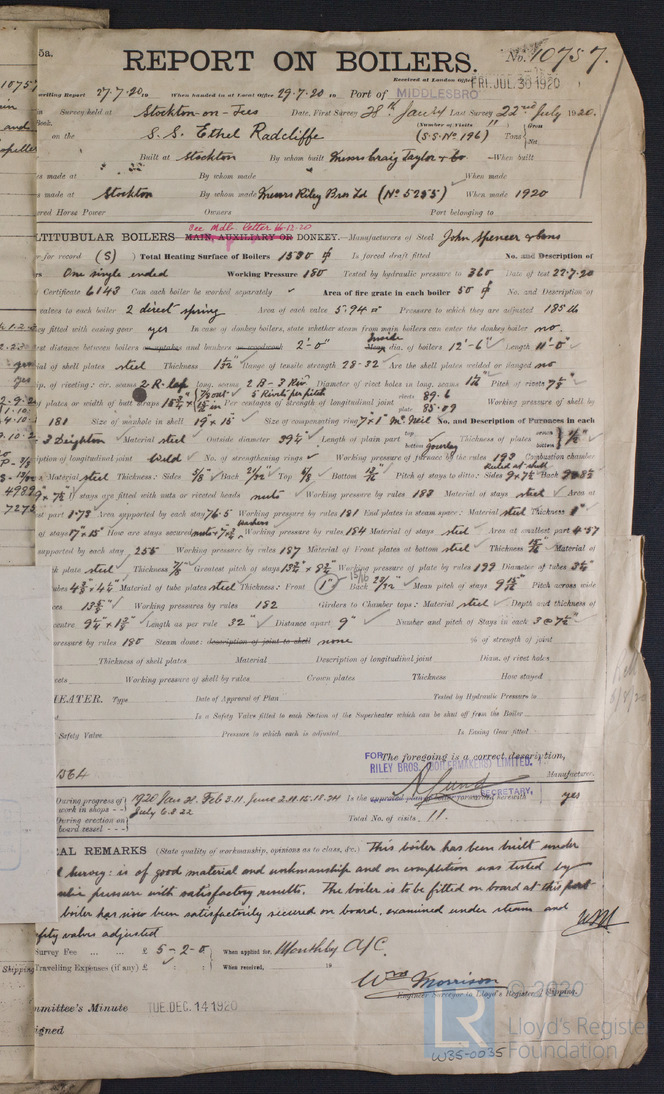 5a.
REPORT ON BOILERS.
No. 10757.
Received at London Office
FRI. JUL. 30 1920
writing Report 27.7.20 19 When handed in at Local Office 29.7.20 19 Port of MIDDLESBRO
Survey held at Stockton-on-Tees Date, First Survey 28th Jan 21 Last Survey 22nd July 1920.
Book. (Number of Visits 11)
on the S.S. Ethel Radcliffe (S.S. No. 196) Tons Gross Net
Built at Stockton By whom built Messrs Craig Taylor & Co When built
made at By whom made When made
made at Stockton By whom made Messrs Riley Bros Ld (No 5255) When made 1920
ered Horse Power Owners Port belonging to
See Mdb. letter 16.12.20
LTITUBULAR BOILERS MAIN, AUXILIARY OR DONKEY.—Manufacturers of Steel John Spencer & Sons
for record (S) Total Heating Surface of Boilers 1530 Is forced draft fitted No. and Description of
One single ended Working Pressure 180 Tested by hydraulic pressure to 360 Date of test 22.7.20
Certificate 6143 Can each boiler be worked separately Area of fire grate in each boiler 50 No. and Description of
valves to each boiler 2 direct spring Area of each valve 5.94 Pressure to which they are adjusted 185 lb
fitted with easing gear yes In case of donkey boilers, state whether steam from main boilers can enter the donkey boiler no.
est distance between boilers or uptakes and bunkers or woodwork 2'-0" Inside Mean dia. of boilers 12'-6" Length 11'-0"
ial of shell plates steel Thickness 1 1/32 Range of tensile strength 28-32 Are the shell plates welded or flanged no
of riveting: cir. seams 2 R. lap long. seams 2 B-3 Riv. Diameter of rivet holes in long. seams Pitch of rivets 7 1/2"
5 Rivets per pitch
plates or width of butt straps Per centages of strength of longitudinal joint rivets 89.6 plate 85.09 Working pressure of shell by
181 Size of manhole in shell 19" x 15" Size of compensating ring 7" x 1" McNeil No. and Description of Furnaces in each
3 Deighton Material steel Outside diameter 39 1/4" Length of plain part top bottom Thickness of plates crown bottom
iption of longitudinal joint Weld No. of strengthening rings Working pressure of furnace by the rules 193 Combustion chamber
Material steel Thickness: Sides 5/8 Back 21/32 Top 5/8 Bottom 13/16 Pitch of stays to ditto: Sides 9 x 7 1/2 Back
stays are fitted with nuts or riveted heads nuts Working pressure by rules 183 Material of stays steel Area at
part 1.73 Area supported by each stay 76.5 Working pressure by rules 181 End plates in steam space: Material steel Thickness 1"
of stays 17" x 15" How are stays secured nuts & washers Working pressure by rules 184 Material of stays steel Area at smallest part 4.57
supported by each stay 255 Working pressure by rules 187 Material of Front plates at bottom steel Thickness 15/16 Material of
plate steel Thickness 7/8 Greatest pitch of stays 13 3/4" x 8 1/2" Working pressure of plate by rules 199 Diameter of tubes 3 1/4"
ubes 4 3/4 x 4 1/2 Material of tube plates steel Thickness: Front 1" 15/16 Back 23/32 Mean pitch of stays Pitch across wide
13 3/4" Working pressures by rules 182 Girders to Chamber tops: Material steel Depth and thickness of
centre 9 1/4 x 1 3/4" Length as per rule 32" Distance apart 9" Number and pitch of Stays in each 3 @ 7 1/2"
pressure by rules 180 Steam dome: description of joint to shell none % of strength of joint
Thickness of shell plates Material Description of longitudinal joint Diam. of rivet holes
Working pressure of shell by rules Crown plates Thickness How stayed
HEATER. Type Date of Approval of Plan Tested by Hydraulic Pressure to
Is a Safety Valve fitted to each Section of the Superheater which can be shut off from the Boiler
Safety Valve Pressure to which each is adjusted Is Easing Gear fitted
The foregoing is a correct description,
FOR RILEY BROS. (BOILERMAKERS) LIMITED.
SECRETARY. Manufacturer.
During progress of work in shops - - 1920 Jan 21. Feb 3.11. June 2.11.15.18.24 Is the approved plan of boiler forwarded herewith yes
During erection on board vessel - - - July 6.8.22 Total No. of visits 11.
AL REMARKS (State quality of workmanship, opinions as to class, &c.) This boiler has been built under
survey: is of good material and workmanship and on completion was tested by
pressure with satisfactory results. The boiler is to be fitted on board at this port
boiler has now been satisfactorily secured on board, examined under steam and
safety valves adjusted
Survey Fee ... ... £ 5-2-0 When applied for, Monthly A/C.
Travelling Expenses (if any) £ : : When received, 19
Wm Morrison
Engineer Surveyor to Lloyd's Register of Shipping.
© 2020
mmittee's Minute TUE. DEC. 14 1920
igned
Shipping
W35-0035
LR
Lloyd's Register
Foundation